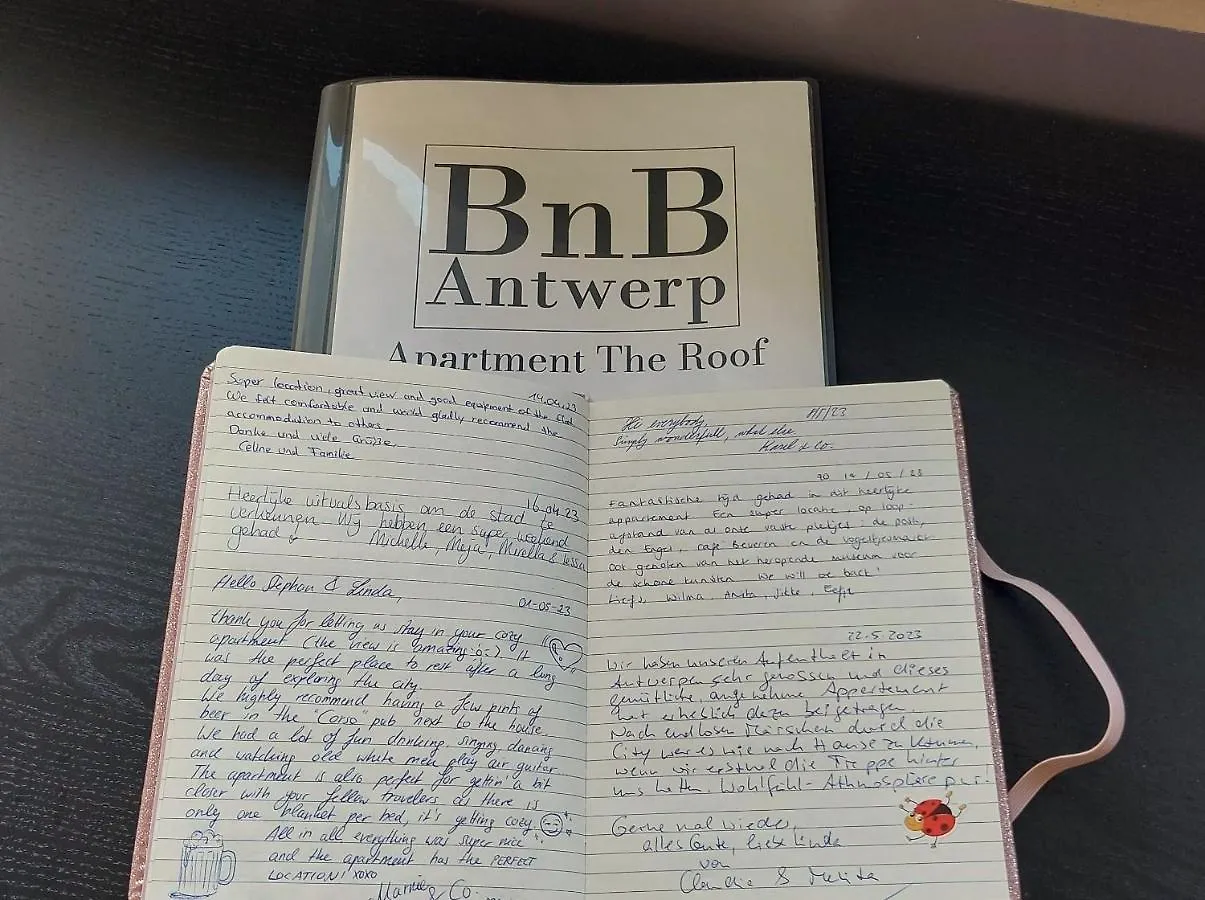 BnB
Antwerp
Apartment The Roof
14.04.23
Super location, great view and good equipment of the flat
We felt comfortable and would gladly recommend the
accommodation to others.
Danke und viele Grüße,
Celine und Familie
16.04.23
Heerlijke uitvalsbasis om de stad te
verkennen. Wij hebben een super weekend
gehad Michelle, Meja, Mirella &
Hello Stephan & Linda,
01-05-23
thank you for letting us stay in your cozy
apartment (the view is amazing :o:) It
was the perfect place to rest after a long
day of exploring the city.
We highly recommend having a few pints of
beer in the "Corso" pub next to the house.
We had a lot of fun drinking, singing, dancing
and watching old white men play air guitar
The apartment is also perfect for gettin' a bit
closer with your fellow travelers as there is
only one blanket per bed, it's getting cozy
All in all everything was super nice
and the apartment has the PERFECT
LOCATION! XOXO
& Co.
Hi everybody,
Simply wonderfull, what else
Karel & Co.
14/05/23
Fantastische tijd gehad in dit heerlijke
appartement. Een super locatie, op loop-
afstand van al onze vaste plekjes: de post,
den Engel, café Beveren en de vogeltjesmarkt
Ook genoten van het heropende museum voor
de schone kunsten. We will be back!
Liefs, Wilma, Anita, Jitte, Eefje
22.5.2023
Wir haben unseren Aufenthalt in
Antwerpen sehr genossen und dieses
gemütliche, angenehme Appartement
hat erheblich dazu beigetragen.
Nach endlosen Märschen durch die
City war es wie nach Hause zu kommen,
wenn wir erstmal die Treppe hinter
uns hatten. Wohlfühl-Athmosphäre pur.
Gerne mal wieder,
alles Gute, liebe Linda
von
Claudia & Melita